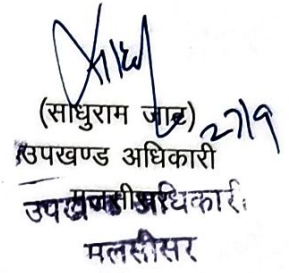 (साधुराम जाट) 27/9
उपखण्ड अधिकारी
मलसीसर
उपखण्ड अधिकारी
मलसीसर